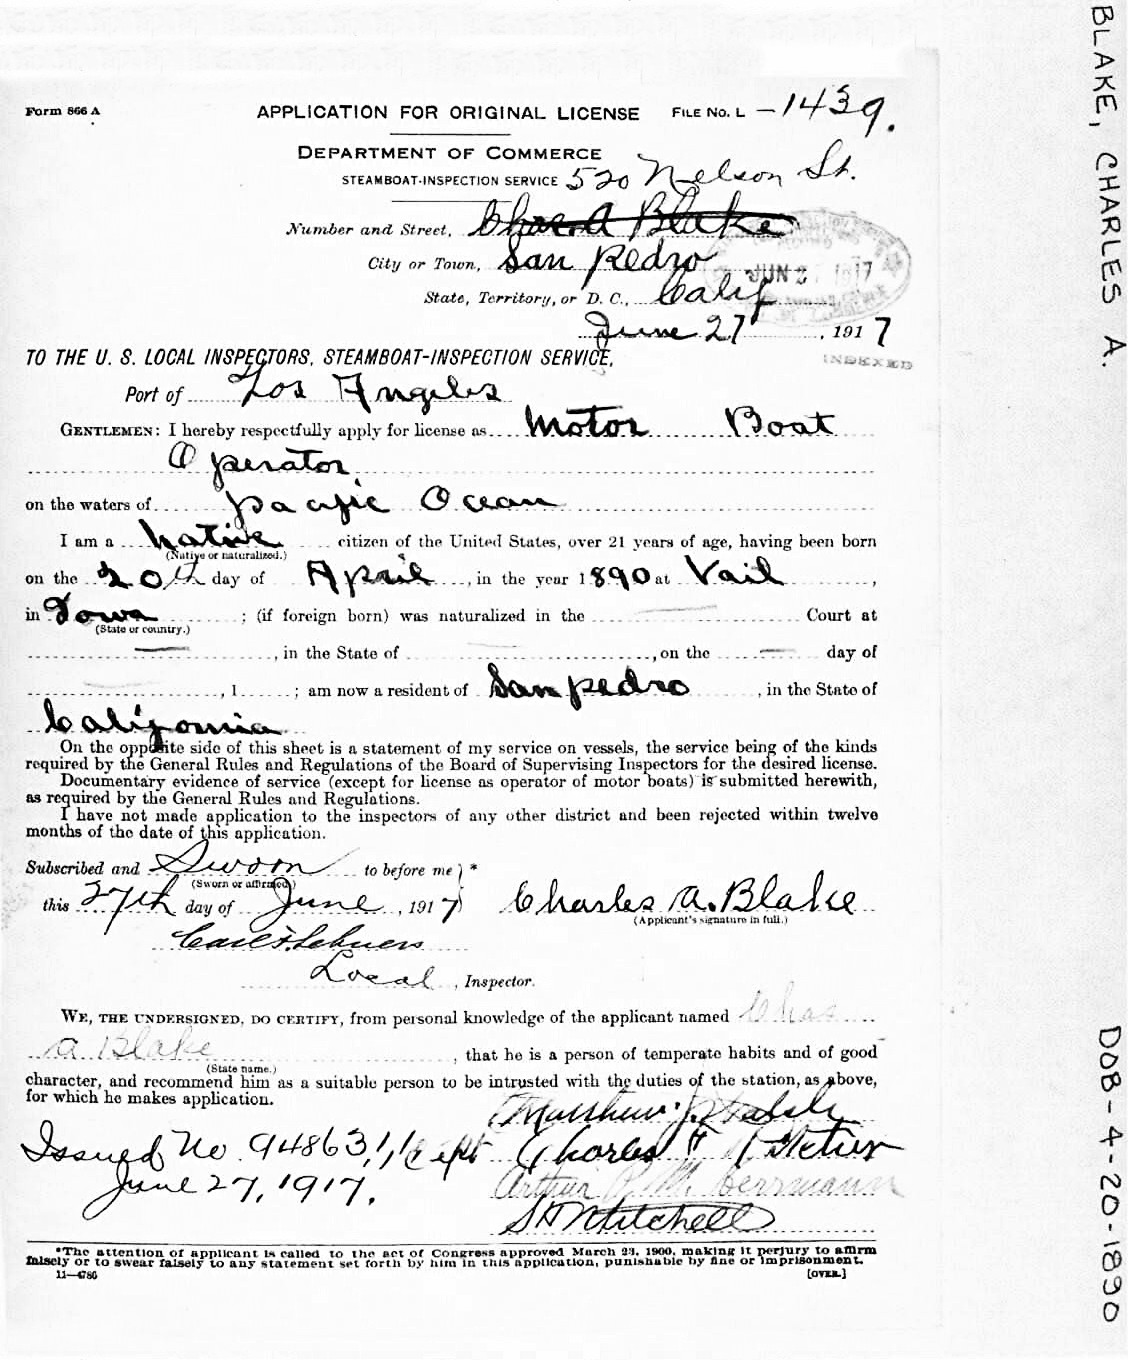 Form 866 A
APPLICATION FOR ORIGINAL LICENSE FILE NO. L -1439.
DEPARTMENT OF COMMERCE
STEAMBOAT-INSPECTION SERVICE 520 Nelson St.
Number and Street, Chas. A Blake
City or Town, San Pedro
JUN 27 1917
State, Territory, or D. C., Calif
June 27, 1917
INDEXED
TO THE U. S. LOCAL INSPECTORS, STEAMBOAT-INSPECTION SERVICE,
Port of Los Angeles
GENTLEMEN: I hereby respectfully apply for license as Motor Boat
Operator
on the waters of pacific Ocean
I am a Native citizen of the United States, over 21 years of age, having been born
(Native or naturalized.)
on the 20th day of April, in the year 1890 at Vail,
in Iowa; (if foreign born) was naturalized in the Court at
(State or country.)
, in the State of , on the day of
, 1 ; am now a resident of San pedro, in the State of
California
On the opposite side of this sheet is a statement of my service on vessels, the service being of the kinds
required by the General Rules and Regulations of the Board of Supervising Inspectors for the desired license.
Documentary evidence of service (except for license as operator of motor boats) is submitted herewith,
as required by the General Rules and Regulations.
I have not made application to the inspectors of any other district and been rejected within twelve
months of the date of this application.
Subscribed and Sworn to before me ) *
(Sworn or affirmed.)
this 27th day of June, 1917 Charles A. Blake
(Applicant's signature in full.)
Local, Inspector.
WE, THE UNDERSIGNED, DO CERTIFY, from personal knowledge of the applicant named Chas
A Blake, that he is a person of temperate habits and of good
(State name.)
character, and recommend him as a suitable person to be intrusted with the duties of the station, as above,
for which he makes application.
Matthew J.
Issued No 94863 Capt Charles F
June 27, 1917. Arthur P. M. Herrmann
S H Mitchell
*The attention of applicant is called to the act of Congress approved March 23, 1900, making it perjury to affirm
falsely or to swear falsely to any statement set forth by him in this application, punishable by fine or imprisonment.
11—4786 [OVER.]
BLAKE, CHARLES A.
DOB-4-20-1890